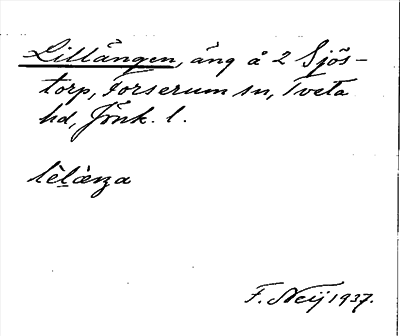 Lillängen, äng å 2 Sjös-
torp, Forserum sn, Tveta
hd, Jönk. l.
lèlæ̀ŋa
F. Neij 1937.